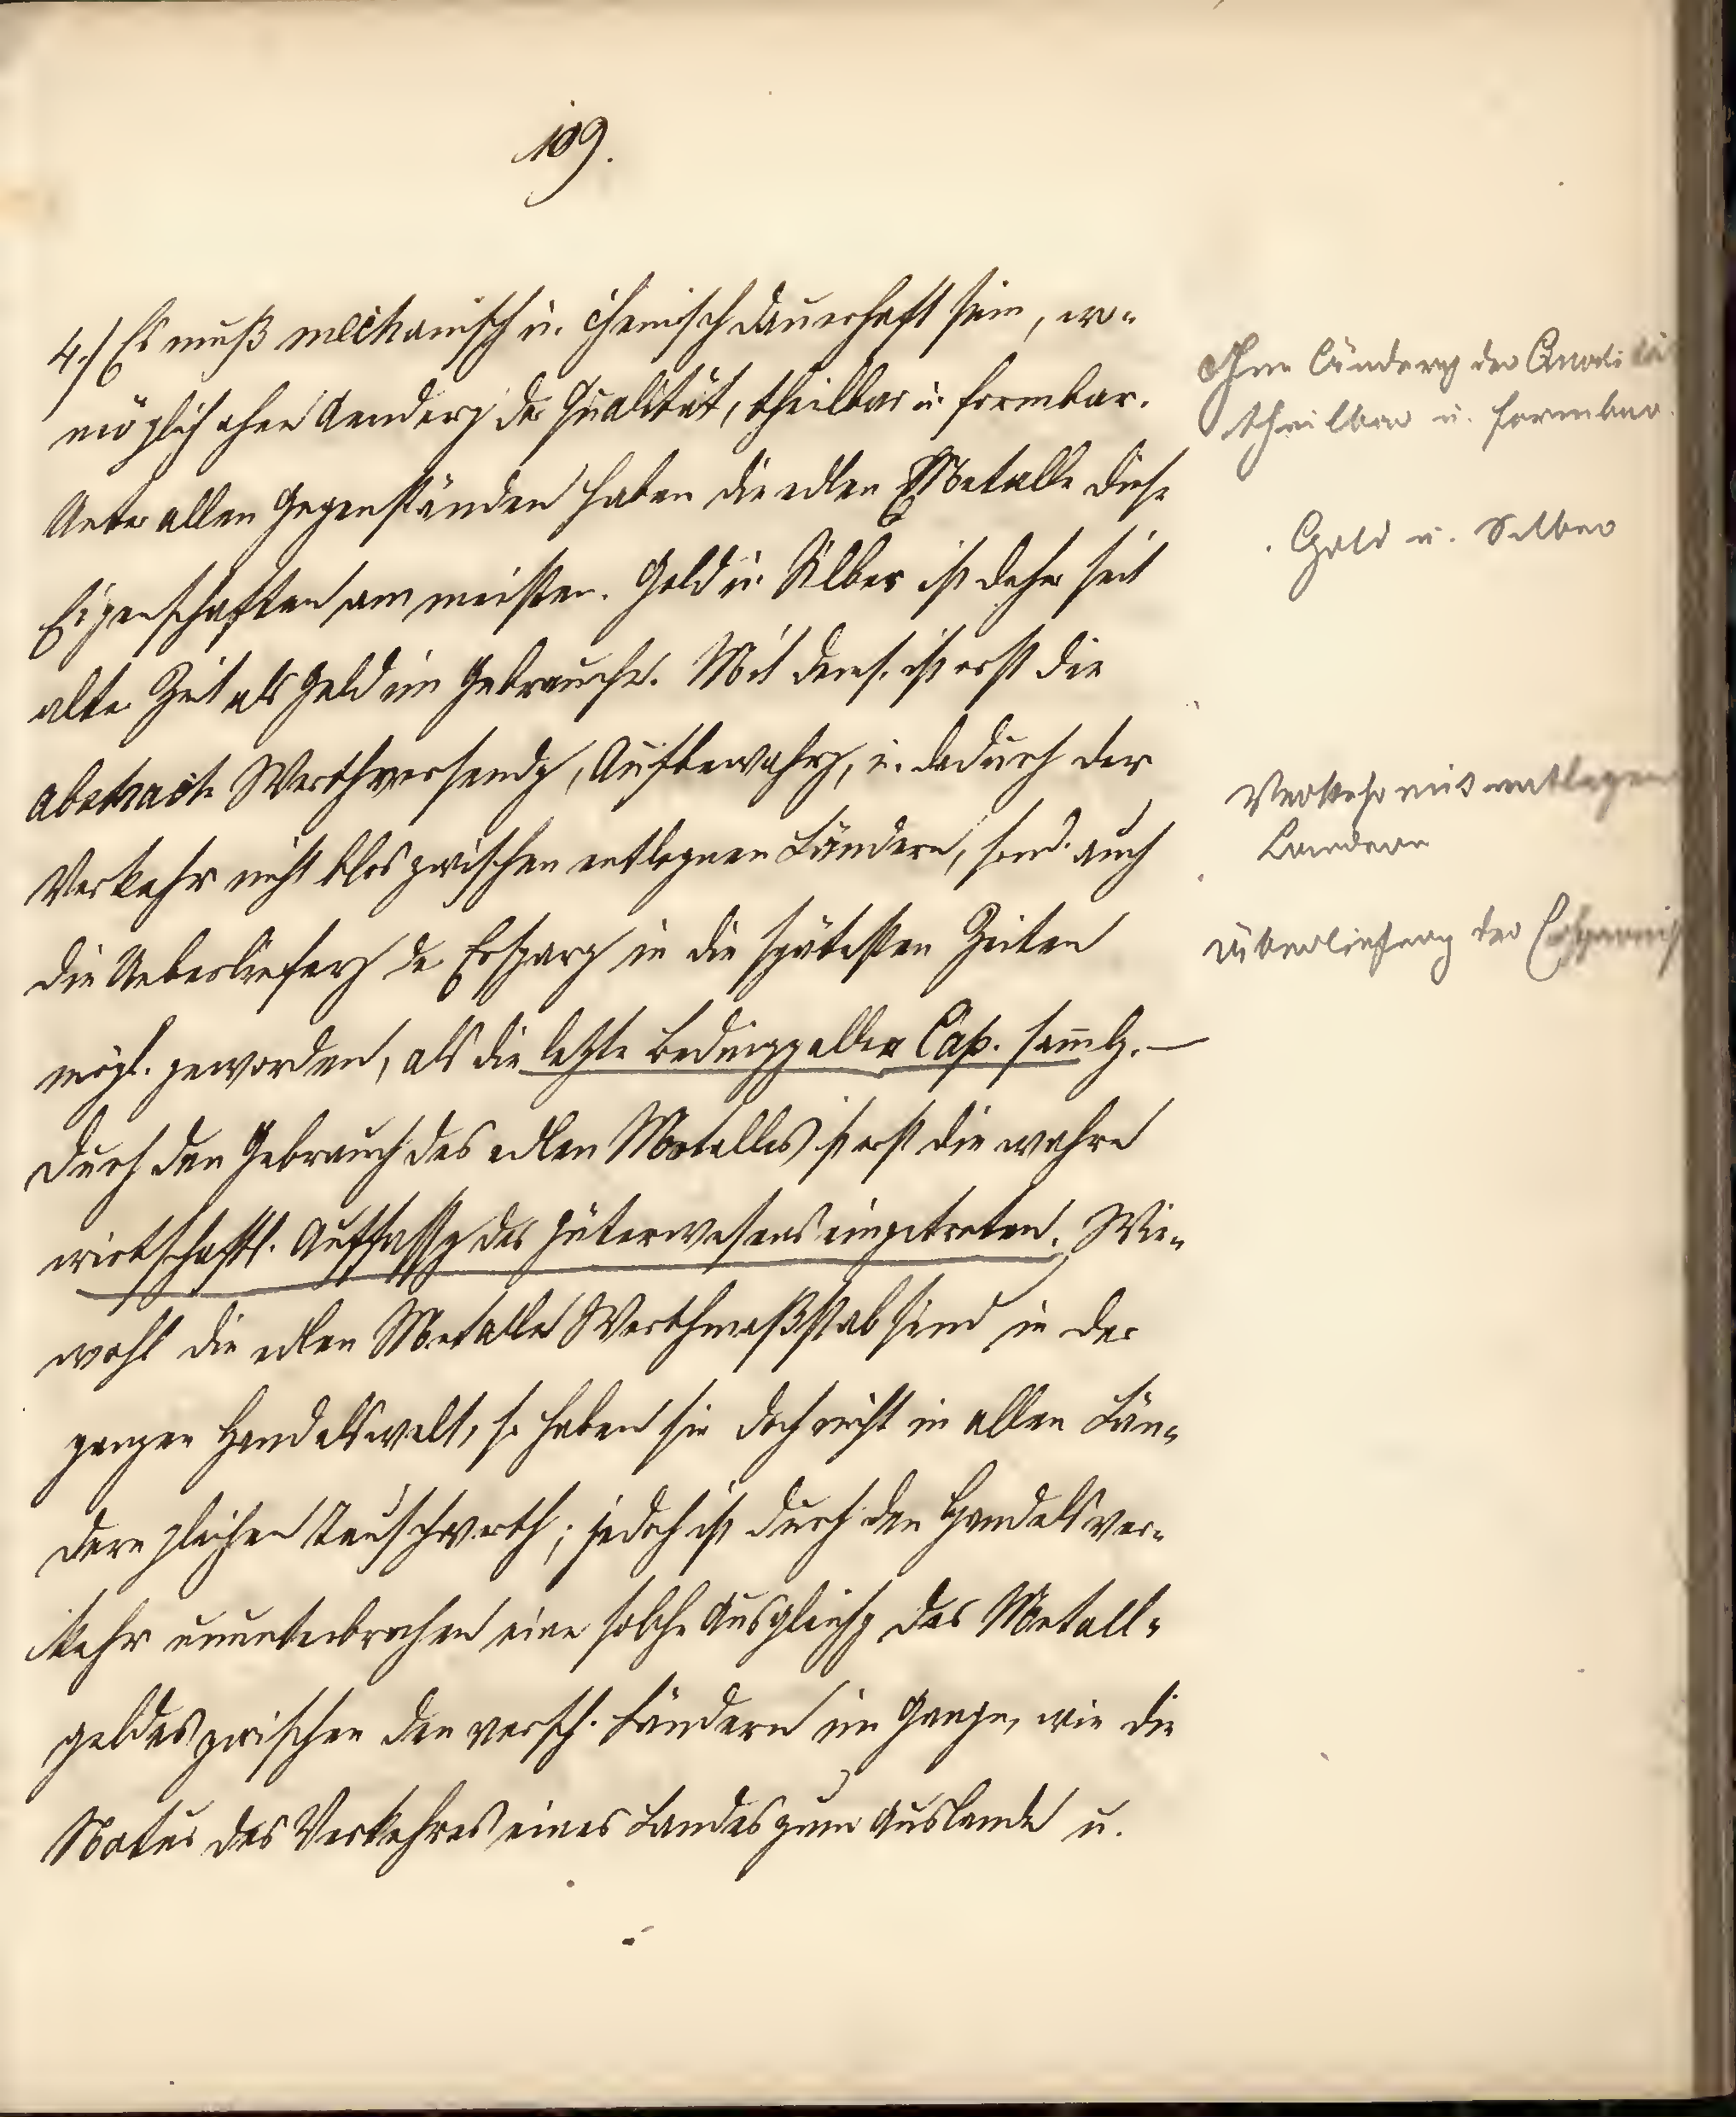 109.
4.) Es muß mechanisch u. chemisch dauerhaft sein, wo-
möglich ohne Aenderg der Qualität, theilbar u. formbar.
Unter allen Gegenständen haben die edlen Metalle diese
Eigenschaften am meisten. Gold u. Silber ist daher seit
alter Zeit als Geld im Gebrauche. Mit dems. ist erst die
abstracte Werthversendg, Aufbewahrg, u. dadurch der
Verkehr nicht blos zwischen entlegnen Ländern, sond. auch
die Ueberlieferg der Ersparg in die spätesten Zeiten
mögl. geworden, als die letzte Bedingg aller Cap. samlg. —
Durch den Gebrauch des edlen Metalles ist erst die wahre
wirtschaftl. Auffassg des Güterwesens eingetreten. Wie-
wohl die edlen Metalle Werthmaßstab sind in der
ganzen Handelswelt, so haben sie doch nicht in allen Län-
dern gleichen Tauschwerth; jedoch ist durch den Handelsver-
kehr ununterbrochen eine solche Ausgleichg des Metall-
geldes zwischen den versch. Ländern im Gange, wie die
Natur des Verkehres eines Landes zum Auslande u.
Ohne Änderg der Qualität
theilbar u. formbar.
Gold u. Silber
Verkehr mit entlegen
Ländern
Überlieferg der Ersparniß